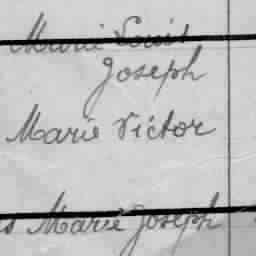 Marie Louis
Joseph
Marie Victor
s Marie Joseph